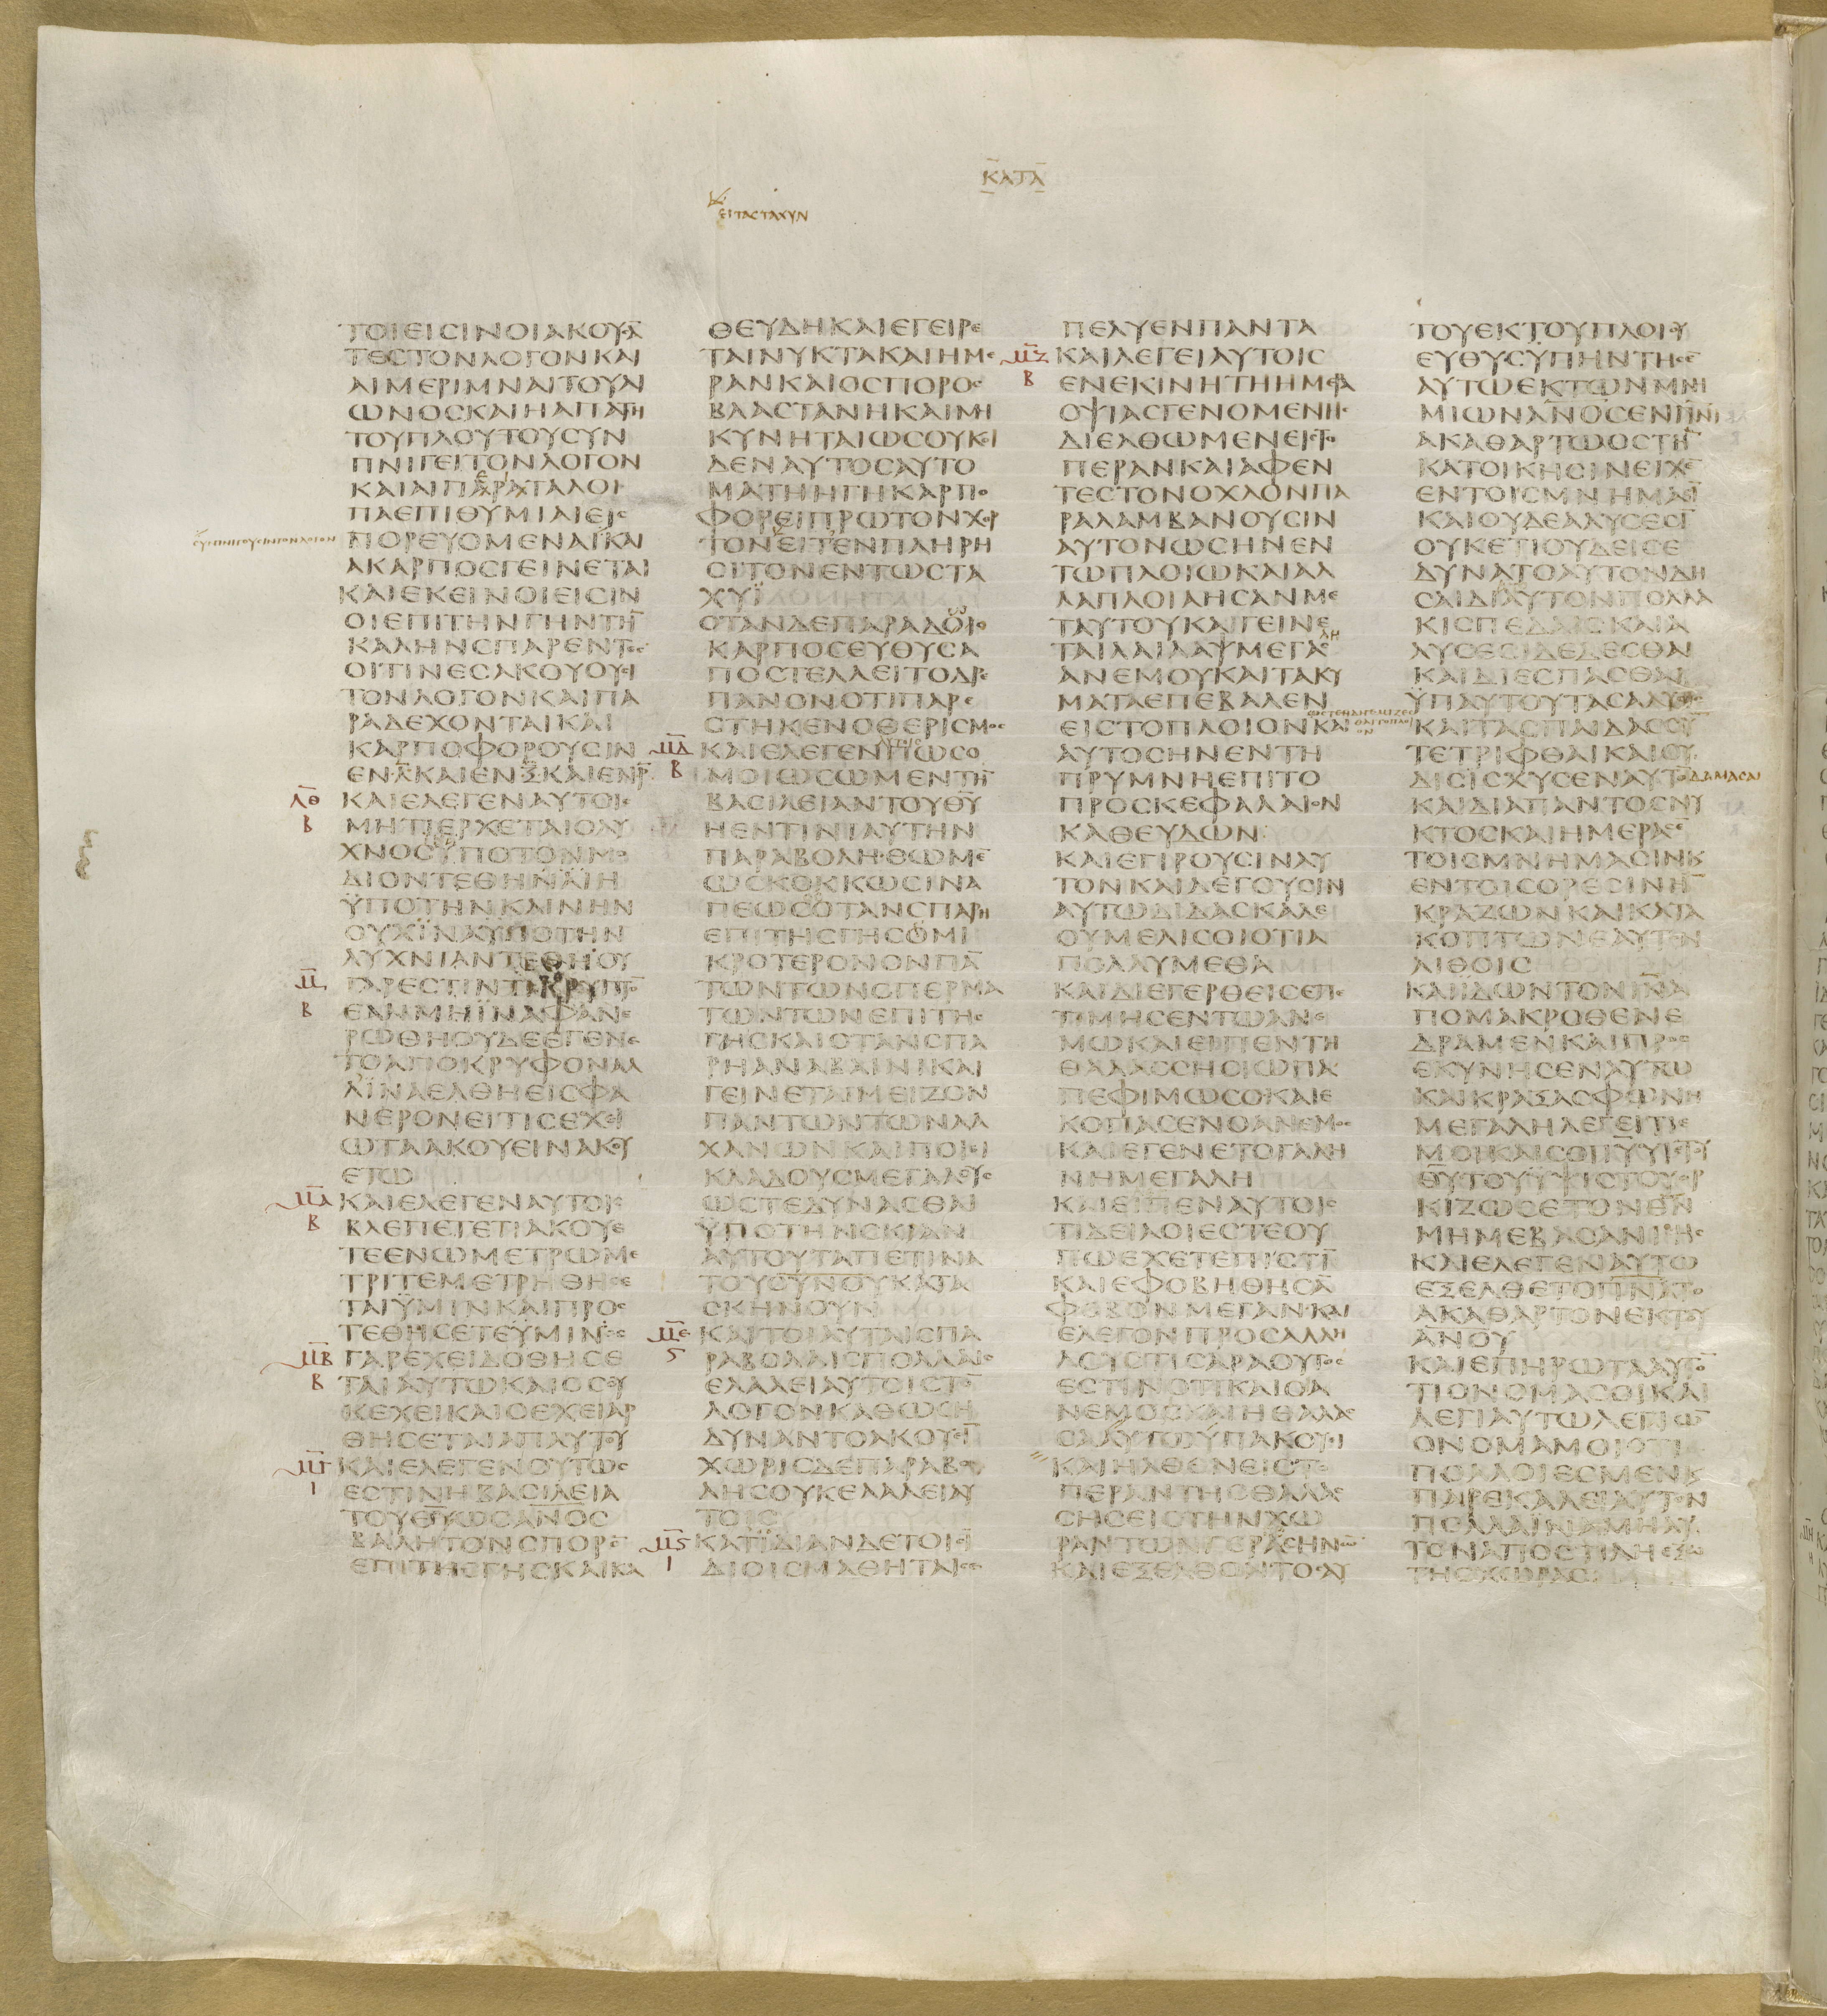 ΚΑΤΑ
ΕΙΤΑΣΤΑΧΥΝ
ΤΟΙΕΙCΙΝΟΙΑΚΟΥCΑ̅
ΤΕCΤΟΝΛΟΓΟΝΚΑΙ
ΑΙΜΕΡΙΜΝΑΙΤΟΥΑΙ
ΩΝΟCΚΑΙΗΑΠΑΤΗ
ΤΟΥΠΛΟΥΤΟΥCΥΝ
ΠΝΙΓΕΙΤΟΝΛΟΓΟΝ
ΚΑΙΑΙΠΑΡΑΤΑΛΟΙ
ΠΑΕΠΙΘΥΜΙΑΙΕΙC
CΥΝΠΝΙΓΟΥCΙΝΤΟΝΛΟΓΟΝ
ΠΟΡΕΥΟΜΕΝΑΙΚΑΙ
ΑΚΑΡΠΟCΓΕΙΝΕΤΑΙ
ΚΑΙΕΚΕΙΝΟΙΕΙCΙΝ
ΟΙΕΠΙΤΗΝΓΗΝΤΗ̅
ΚΑΛΗΝCΠΑΡΕΝΤΕC
ΟΙΤΙΝΕCΑΚΟΥΟΥCΙ
ΤΟΝΛΟΓΟΝΚΑΙΠΑ
ΡΑΔΕΧΟΝΤΑΙΚΑΙ
ΚΑΡΠΟΦΟΡΟΥCΙΝ
ΕΝΛ̅ΚΑΙΕΝΞ̅ΚΑΙΕΝΡ̅
ΛΘ Β
ΚΑΙΕΛΕΓΕΝΑΥΤΟΙC
ΜΗΤΙΕΡΧΕΤΑΙΟΛΥ
ΧΝΟCΫΠΟΤΟΝΜΟ
ΔΙΟΝΤΕΘΗΝΑΪΗ
ΫΠΟΤΗΝΚΛΙΝΗΝ
ΟΥΧΪΝΑΥΠΟΤΗΝ
ΛΥΧΝΙΑΝΤΕΘΗΟΥ
Μ Β
ΓΑΡΕCΤΙΝΤΙΚΡΥΠΤΟ̅
ΕΑΝΜΗΪΝΑΦΑΝΕ
ΡΩΘΗΟΥΔΕΕΓΕΝΕ
ΤΟΑΠΟΚΡΥΦΟΝΑΛ
ΛΪΝΑΕΛΘΗΕΙCΦΑ
ΝΕΡΟΝΕΙΤΙCΕΧΕΙ
ΩΤΑΑΚΟΥΕΙΝΑΚΟΥ
ΕΤΩ
ΜΑ Β
ΚΑΙΕΛΕΓΕΝΑΥΤΟΙC
ΒΛΕΠΕΤΕΤΙΑΚΟΥΕ
ΤΕΕΝΩΜΕΤΡΩΜΕ
ΤΡΙΤΕΜΕΤΡΗΘΗCΕ
ΤΑΙΫΜΙΝΚΑΙΠΡΟC
ΤΕΘΗCΕΤΕΫΜΙΝΟC
ΜΒ Β
ΓΑΡΕΧΕΙΔΟΘΗCΕ
ΤΑΙΑΥΤΩΚΑΙΟCΟΥ
ΚΕΧΕΙΚΑΙΟΕΧΕΙΑΡ
ΘΗCΕΤΑΙΑΠΑΥΤΟΥ
ΜΓ Ι
ΚΑΙΕΛΕΓΕΝΟΥΤΩC
ΕCΤΙΝΗΒΑCΙΛΕΙΑ
ΤΟΥΘ̅Υ̅ΩCΑ̅Ν̅Ο̅C̅
ΒΑΛΗΤΟΝCΠΟΡΟ̅
ΕΠΙΤΗCΓΗCΚΑΙΚΑ
ΘΕΥΔΗΚΑΙΕΓΕΙΡΕ
ΤΑΙΝΥΚΤΑΚΑΙΗΜΕ
ΡΑΝΚΑΙΟCΠΟΡΟC
ΒΛΑCΤΑΝΗΚΑΙΜΗ
ΚΥΝΗΤΑΙΩCΟΥΚΟΙ
ΔΕΝΑΥΤΟCΑΥΤΟ
ΜΑΤΗΗΓΗΚΑΡΠΟ
ΦΟΡΕΙΠΡΩΤΟΝΧΟΡ
ΤΟΝΕΙΤΕΝΠΛΗΡΗ
CΙΤΟΝΕΝΤΩCΤΑ
ΧΥΪ
ΟΤΑΝΔΕΠΑΡΑΔΟΙΟ
ΚΑΡΠΟCΕΥΘΥCΑ
ΠΟCΤΕΛΛΕΙΤΟΔΡΕ
ΠΑΝΟΝΟΤΙΠΑΡΕ
CΤΗΚΕΝΟΘΕΡΙCΜΟC
ΜΔ Β
ΚΑΙΕΛΕΓΕΝΠΩCΟ
ΜΟΙΩCΩΜΕΝΤΗ̅
ΒΑCΙΛΕΙΑΝΤΟΥΘ̅Υ̅
ΗΕΝΤΙΝΙΑΥΤΗΝ
ΠΑΡΑΒΟΛΗΘΩΜΕ̅
ΩCΚΟΚΚΩCΙΝΑ
ΠΕΩCΟΤΑΝCΠΑΡΗ
ΕΠΙΤΗCΓΗCΟΜΙ
ΚΡΟΤΕΡΟΝΟΝΠΑ̅
ΤΩΝΤΩΝCΠΕΡΜΑ
ΤΩΝΤΩΝΕΠΙΤΗC
ΓΗCΚΑΙΟΤΑΝCΠΑ
ΡΗΑΝΑΒΑΙΝΙΚΑΙ
ΓΕΙΝΕΤΑΙΜΕΙΖΟΝ
ΠΑΝΤΩΝΤΩΝΛΑ
ΧΑΝΩΝΚΑΙΠΟΙΕΙ
ΚΛΑΔΟΥCΜΕΓΑΛΟΥC
ΩCΤΕΔΥΝΑCΘΑΙ
ΫΠΟΤΗΝCΚΙΑΝ
ΑΥΤΟΥΤΑΠΕΤΙΝΑ
ΤΟΥΟ̅Υ̅Ν̅Ο̅Υ̅ΚΑΤΑ
CΚΗΝΟΥΝ
ΜΕ Ϛ
ΚΑΙΤΟΙΑΥΤΑΙCΠΑ
ΡΑΒΟΛΑΙCΠΟΛΛΑΙC
ΕΛΑΛΕΙΑΥΤΟΙCΤΟ̅
ΛΟΓΟΝΚΑΘΩCΗ
ΔΥΝΑΝΤΟΑΚΟΥΕΙ̅
ΧΩΡΙCΔΕΠΑΡΑΒΟ
ΛΗCΟΥΚΕΛΑΛΕΙΑΥ
ΤΟΙC
ΜϚ Ι
ΚΑΤΪΔΙΑΝΔΕΤΟΙCΪ
ΔΙΟΙCΜΑΘΗΤΑΙCΕ
ΠΕΛΥΕΝΠΑΝΤΑ
ΜΖ Β
ΚΑΙΛΕΓΕΙΑΥΤΟΙC
ΕΝΕΚΙΝΗΤΗΗΜΕΡΑ
ΟΨΙΑCΓΕΝΟΜΕΝΗC
ΔΙΕΛΘΩΜΕΝΕΙCΤΟ
ΠΕΡΑΝΚΑΙΑΦΕΝ
ΤΕCΤΟΝΟΧΛΟΝΠΑ
ΡΑΛΑΜΒΑΝΟΥCΙΝ
ΑΥΤΟΝΩCΗΝΕΝ
ΤΩΠΛΟΙΩΚΑΙΑΛ
ΛΑΠΛΟΙΑΗCΑΝΜΕ
ΤΑΥΤΟΥΚΑΙΓΕΙΝΕ
ΤΑΙΛΑΙΛΑΨΜΕΓΑC
ΑΝΕΜΟΥΚΑΙΤΑΚΥ
ΜΑΤΑΕΠΕΒΑΛΕΝ
ΕΙCΤΟΠΛΟΙΟΝΚΑΙ
ΑΥΤΟCΗΝΕΝΤΗ
ΠΡΥΜΝΗΕΠΙΤΟ
ΠΡΟCΚΕΦΑΛΑΙΟΝ
ΚΑΘΕΥΔΩΝ
ΚΑΙΕΓΙΡΟΥCΙΝΑΥ
ΤΟΝΚΑΙΛΕΓΟΥCΙΝ
ΑΥΤΩΔΙΔΑCΚΑΛΕ
ΟΥΜΕΛΙCΟΙΟΤΙΑ
ΠΟΛΛΥΜΕΘΑ
ΚΑΙΔΙΕΓΕΡΘΕΙCΕΠΕ
ΤΙΜΗCΕΝΤΩΑΝΕ
ΜΩΚΑΙΕΙΠΕΝΤΗ
ΘΑΛΑCCΗCΙΩΠΑ
ΠΕΦΙΜΩCΟΚΑΙΕ
ΚΟΠΑCΕΝΟΑΝΕΜΟC
ΚΑΙΕΓΕΝΕΤΟΓΑΛΗ
ΝΗΜΕΓΑΛΗ
ΚΑΙΕΙΠΕΝΑΥΤΟΙC
ΤΙΔΕΙΛΟΙΕCΤΕΟΥ
ΠΩΕΧΕΤΕΠΙCΤΙ̅
ΚΑΙΕΦΟΒΗΘΗCΑ̅
ΦΟΒΟΝΜΕΓΑΝΚΑΙ
ΕΛΕΓΟΝΠΡΟCΑΛΛΗ
ΛΟΥCΤΙCΑΡΑΟΥΤΟC
ΕCΤΙΝΟΤΙΚΑΙΟΑ
ΝΕΜΟCΚΑΙΗΘΑΛΑC
CΑΑΥΤΩΫΠΑΚΟΥΕΙ
ΚΑΙΗΛΘΟΝΕΙCΤΟ
ΠΕΡΑΝΤΗCΘΑΛΑC
CΗCΕΙCΤΗΝΧΩ
ΡΑΝΤΩΝΓΕΡΑCΗΝΩ̅
ΚΑΙΕΞΕΛΘΟΝΤΟCΑΥ
ΤΟΥΕΚΤΟΥΠΛΟΙΟΥ
ΕΥΘΥCΫΠΗΝΤΗCΕ̅
ΑΥΤΩΕΚΤΩΝΜΝΗ
ΜΙΩΝΑ̅Ν̅Ο̅C̅ΕΝΠ̅Ν̅Ι̅
ΑΚΑΘΑΡΤΩΟCΤΗ̅
ΚΑΤΟΙΚΗCΙΝΕΙΧΕ̅
ΕΝΤΟΙCΜΝΗΜΑCΙ̅
ΚΑΙΟΥΔΕΑΛΥCΕCΙ̅
ΟΥΚΕΤΙΟΥΔΕΙCΕ
ΔΥΝΑΤΟΑΥΤΟΝΔΗ
CΑΙΔΙΑΥΤΟΝΠΟΛΛΑ
ΚΙCΠΕΔΑΙCΚΑΙΑ
ΛΥCΕCΙΔΕΔΕCΘΑΙ
ΚΑΙΔΙΕCΠΑCΘΑΙ
ΫΠΑΥΤΟΥΤΑCΑΛΥCΕΙC
ΚΑΙΤΑCΠΑΙΔΑCCΥ̅
ΤΕΤΡΙΦΘΑΙΚΑΙΟΥ
ΔΙCΙCΧΥCΕΝΑΥΤΟ̅ΔΑΜΑCΑΙ
ΚΑΙΔΙΑΠΑΝΤΟCΝΥ
ΚΤΟCΚΑΙΗΜΕΡΑCΕ̅
ΤΟΙCΜΝΗΜΑCΙΝΚ
ΕΝΤΟΙCΟΡΕCΙΝΗ̅
ΚΡΑΖΩΝΚΑΙΚΑΤΑ
ΚΟΠΤΩΝΕΑΥΤΟΝ
ΛΙΘΟΙC
ΚΑΙΪΔΩΝΤΟΝΙ̅Ν̅Α
ΠΟΜΑΚΡΟΘΕΝΕ
ΔΡΑΜΕΝΚΑΙΠΡΟC
ΕΚΥΝΗCΕΝΑΥΤΩ
ΚΑΙΚΡΑΞΑCΦΩΝΗ
ΜΕΓΑΛΗΛΕΓΕΙΤΙΕ
ΜΟΙΚΑΙCΟΙΙ̅Υ̅ΥΙΕΤΟΥ
Θ̅Υ̅ΤΟΥΫΨΙCΤΟΥΟΡ
ΚΙΖΩCΕΤΟΝΘ̅Ν̅
ΜΗΜΕΒΑCΑΝΙCΗC
ΚΑΙΕΛΕΓΕΝΑΥΤΩ
ΕΞΕΛΘΕΤΟΠ̅Ν̅Α̅ΤΟ
ΑΚΑΘΑΡΤΟΝΕΚΤΟΥ
Α̅Ν̅Ο̅Υ̅
ΚΑΙΕΠΗΡΩΤΑΑΥΤΟ̅
ΤΙΟΝΟΜΑCΟΙΚΑΙ
ΛΕΓΙΑΥΤΩΛΕΓΙΩ̅
ΟΝΟΜΑΜΟΙΟΤΙ
ΠΟΛΛΟΙΕCΜΕΝΚ
ΠΑΡΕΚΑΛΕΙΑΥΤΟΝ
ΠΟΛΛΑΪΝΑΜΗΑΥ
ΤΟΝΑΠΟCΤΙΛΗΕΞΩ
ΤΗCΧΩΡΑC